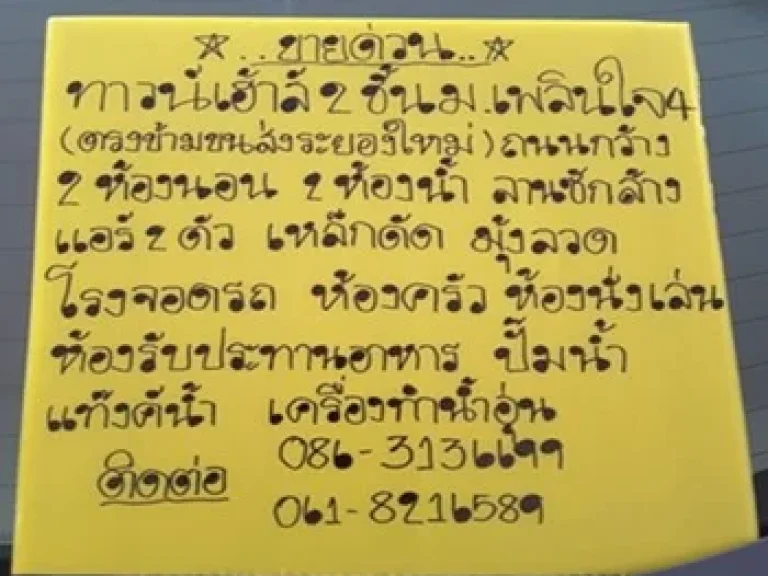 ☆..ขายด่วน..☆
ทาวน์เฮ้าส์ 2 ชั้น ม.เพลินใจ 4
(ตรงข้ามขนส่งระยองใหม่) ถนนกว้าง
2 ห้องนอน 2 ห้องน้ำ ลานซักล้าง
แอร์ 2 ตัว เหล็กดัด มุ้งลวด
โรงจอดรถ ห้องครัว ห้องนั่งเล่น
ห้องรับประทานอาหาร ปั๊มน้ำ
แท๊งค์น้ำ เครื่องทำน้ำอุ่น
086-3136699
ติดต่อ
061-8216589